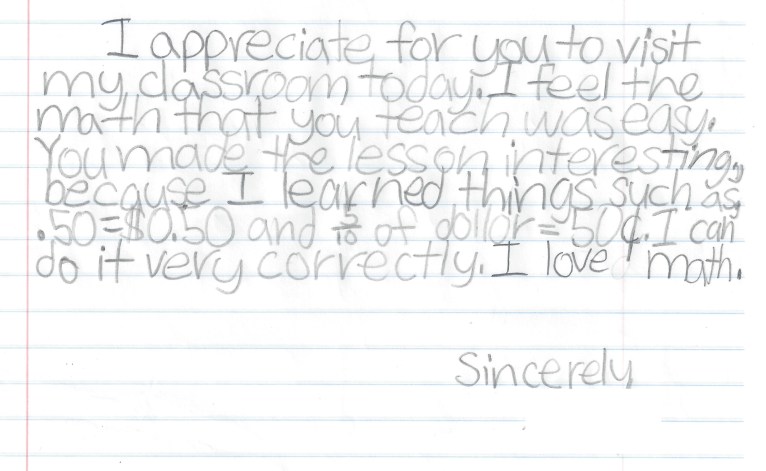 I appreciate for you to visit
my classroom today. I feel the
math that you teach was easy.
You made the lesson interesting,
because I learned things such as
.50=$0.50 and 5/10 of dollar=50¢. I can
do it very correctly. I love math.
Sincerely